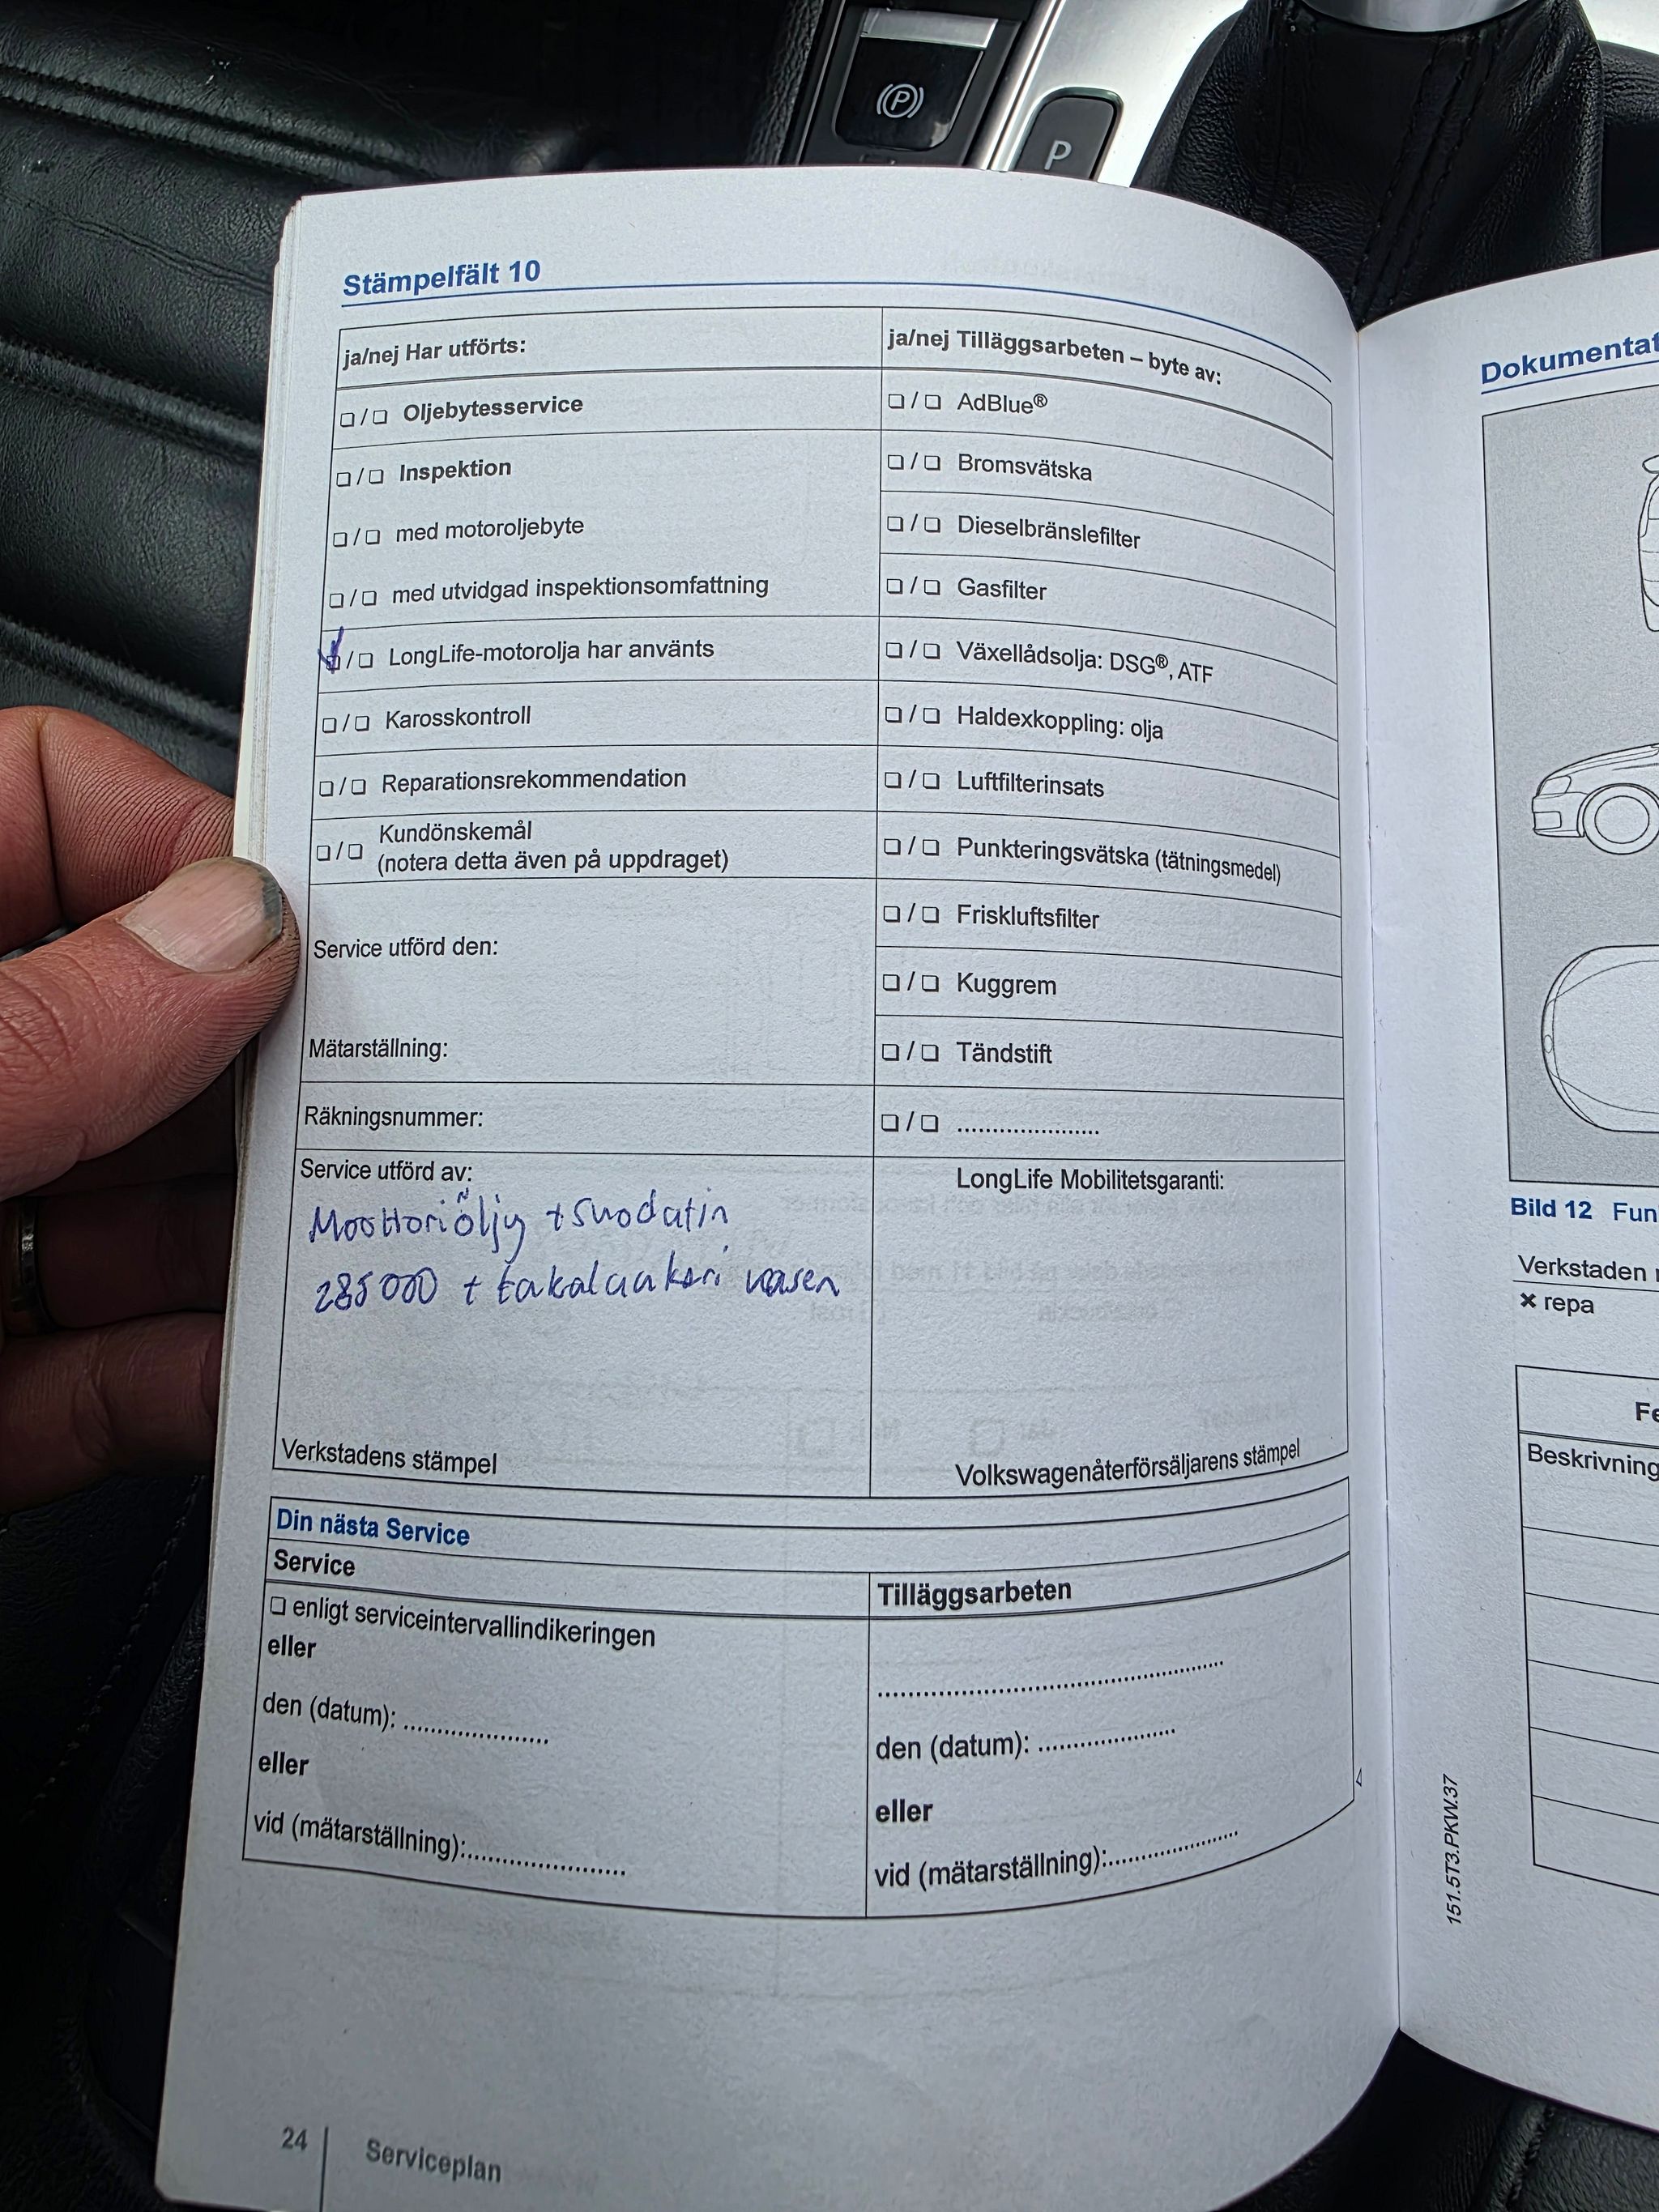 P
P
Stämpelfält 10
ja/nej Har utförts:
❏ / ❏ Oljebytesservice
❏ / ❏ Inspektion
❏ / ❏ med motoroljebyte
❏ / ❏ med utvidgad inspektionsomfattning
❏ / ❏ LongLife-motorolja har använts
❏ / ❏ Karosskontroll
❏ / ❏ Reparationsrekommendation
❏ / ❏ Kundönskemål
(notera detta även på uppdraget)
Service utförd den:
Mätarställning:
Räkningsnummer:
Service utförd av:
Moottoriöljy + suodatin
285000 + takalaakeri vasen
Verkstadens stämpel
ja/nej Tilläggsarbeten – byte av:
❏ / ❏ AdBlue®
❏ / ❏ Bromsvätska
❏ / ❏ Dieselbränslefilter
❏ / ❏ Gasfilter
❏ / ❏ Växellådsolja: DSG®, ATF
❏ / ❏ Haldexkoppling: olja
❏ / ❏ Luftfilterinsats
❏ / ❏ Punkteringsvätska (tätningsmedel)
❏ / ❏ Friskluftsfilter
❏ / ❏ Kuggrem
❏ / ❏ Tändstift
❏ / ❏ .....................
LongLife Mobilitetsgaranti:
Volkswagenåterförsäljarens stämpel
Din nästa Service
Service
❏ enligt serviceintervallindikeringen
eller
den (datum): .....................
eller
vid (mätarställning):.......................
Tilläggsarbeten
..................................................
den (datum): .....................
eller
vid (mätarställning):.....................
24
Serviceplan
Bild 12
Verkstaden
✖ repa
Beskrivning
151.5T3.PKW.37